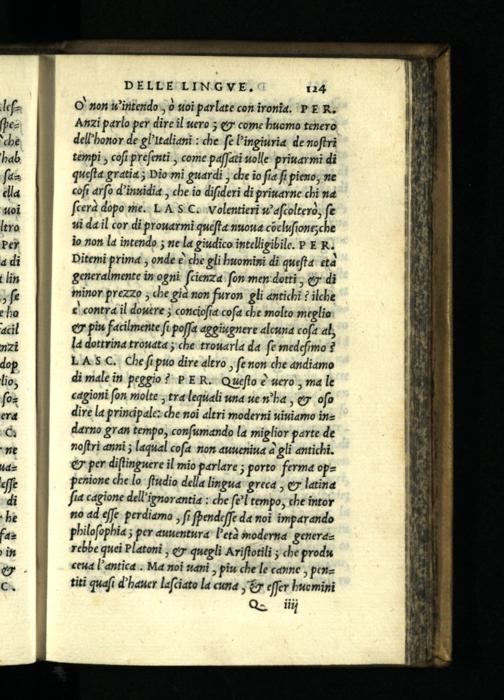 DELLE LINGVE. 124
Ò non u'intendo, ò uoi parlate con ironia. PER.
Anzi parlo per dire il uero; & come huomo tenero
dell'honor de gl'Italiani: che se l'ingiuria de nostri
tempi, cosi presenti, come passati uolle priuarmi di
questa gratia; Dio mi guardi, che io sia si pieno, ne
cosi arso d'inuidia, che io disideri di priuarne chi na
scerà dopo me. LASC. Volentieri u'ascolterò, se
ui da il cor di prouarmi questa nuoua cõclusione; che
io non la intendo; ne la giudico intelligibile. PER.
Ditemi prima, onde è che gli huomini di questa età
generalmente in ogni scienza son men dotti, & di
minor prezzo, che già non furon gli antichi? ilche
è contra il douere; conciosia cosa che molto meglio
& piu facilmente si possa aggiugnere alcuna cosa al,
la dottrina trouata; che trouarla da se medesimo?
LASC. Che si puo dire altro, se non che andiamo
di male in peggio? PER. Questo è uero, ma le
cagioni son molte, tra lequali una ue n'ha, & oso
dire la principale: che noi altri moderni uiuiamo in-
darno gran tempo, consumando la miglior parte de
nostri anni; laqual cosa non aueniua à gli antichi.
& per distinguere il mio parlare; porto ferma op-
penione che lo studio della lingua greca, & latina
sia cagione dell'ignorantia: che se'l tempo, che intor
no ad esse perdiamo, si spendesse da noi imparando
philosophia; per auuentura l'età moderna genera-
rebbe quei Platoni, & quegli Aristotili; che produ
ceua l'antica. Ma noi uani, piu che le canne, pen-
titi quasi d'hauer lasciato la cuna, & esser huomini
Q iiij